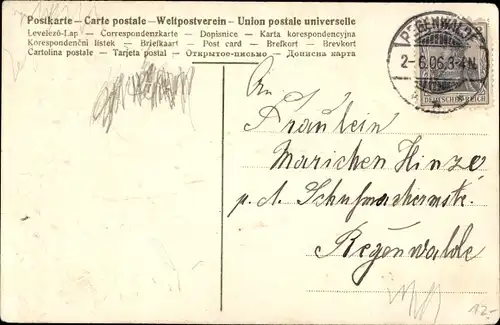 Postkarte – Carte postale – Weltpostverein – Union postale universelle
Levelező-Lap — Correspondenzkarte — Dopisnice — Karta korespondencyjna
Korespondenční lístek — Briefkaart — Post card — Brefkort — Brevkort
Cartolina postale — Tarjeta postal — Открытое-письмо — Дописна карта
REGENWALDE
2-6.06.3-4N.
DEUTSCHES REICH
An
Fräulein
Mariechen Hinze
p. d. Schuhmachermstr.
Regenwalde
12,-